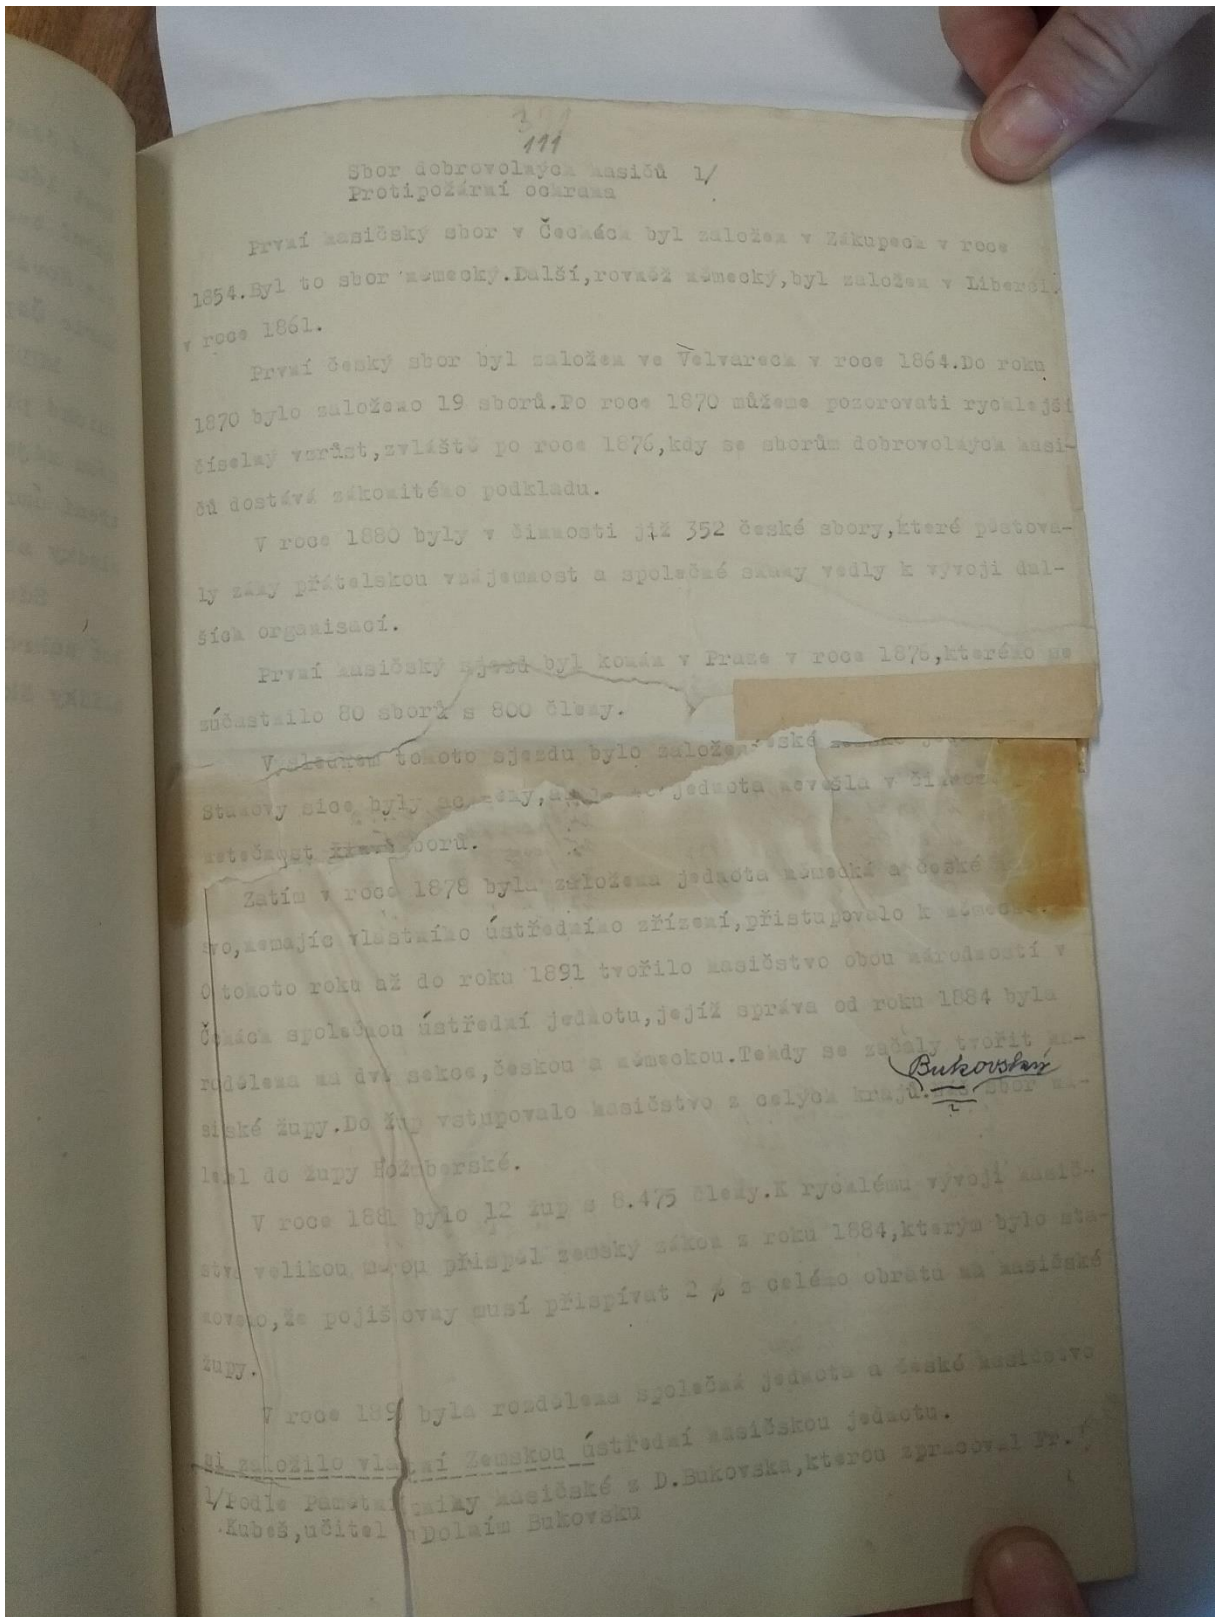 111
Sbor dobrovolných hasičů 1/
Protipožární ochrana
První hasičský sbor v Čechách byl založen v Zákupech v roce
1854.Byl to sbor německý.Další,rovněž německý,byl založen v Liberci
v roce 1861.
První český sbor byl založen ve Velvarech v roce 1864.Do roku
1870 bylo založeno 19 sborů.Po roce 1870 můžeme pozorovati rychlejší
číselný vzrůst,zvláště po roce 1876,kdy se sborům dobrovolných hasi-
čů dostává zákonitého podkladu.
V roce 1880 byly v činnosti již 352 české sbory,které pěstova-
ly záhy přátelskou vzájemnost a společné snahy vedly k vývoji dal-
ších organisací.
První hasičský sjezd byl konán v Praze v roce 1876,kterého se
zúčastnilo 80 sborů s 800 členy.
V tohoto sjezdu bylo založen české
Stanovy sice byly jednota nevešla v
netečnost borů.
Zatím v roce 1878 byla založena jednota německá a české
vo,nemajíc vlastního ústředního zřízení,přistupovalo k
O tohoto roku až do roku 1891 tvořilo hasičstvo obou národností v
Čehách společnou ústřední jednotu,jejíž správa od roku 1884 byla
rozdělena na dvě sekce,českou a německou.Tehdy se začaly tvořit ha-
Bukovský
sičské župy.Do žup vstupovalo hasičstvo z celých krajů.Náš sbor ná-
ležel do župy
V roce 1881 bylo 12 žup s 8.475 členy.K rychlému vývoji hasič-
stva velikou měrou přispěl zemský zákon z roku 1884,kterým bylo sta-
noveno,že pojišťovny musí přispívat 2 % z celého obratu na hasičské
župy.
V roce 1891 byla rozdělena společná jednota a české hasičstvo
si založilo vlastní Zemskou ústřední hasičskou jednotu.
1/Podle Pamětní knihy hasičské z D.Bukovska,kterou zpracoval Fr.
Kubeš,učitel v Dolním Bukovsku